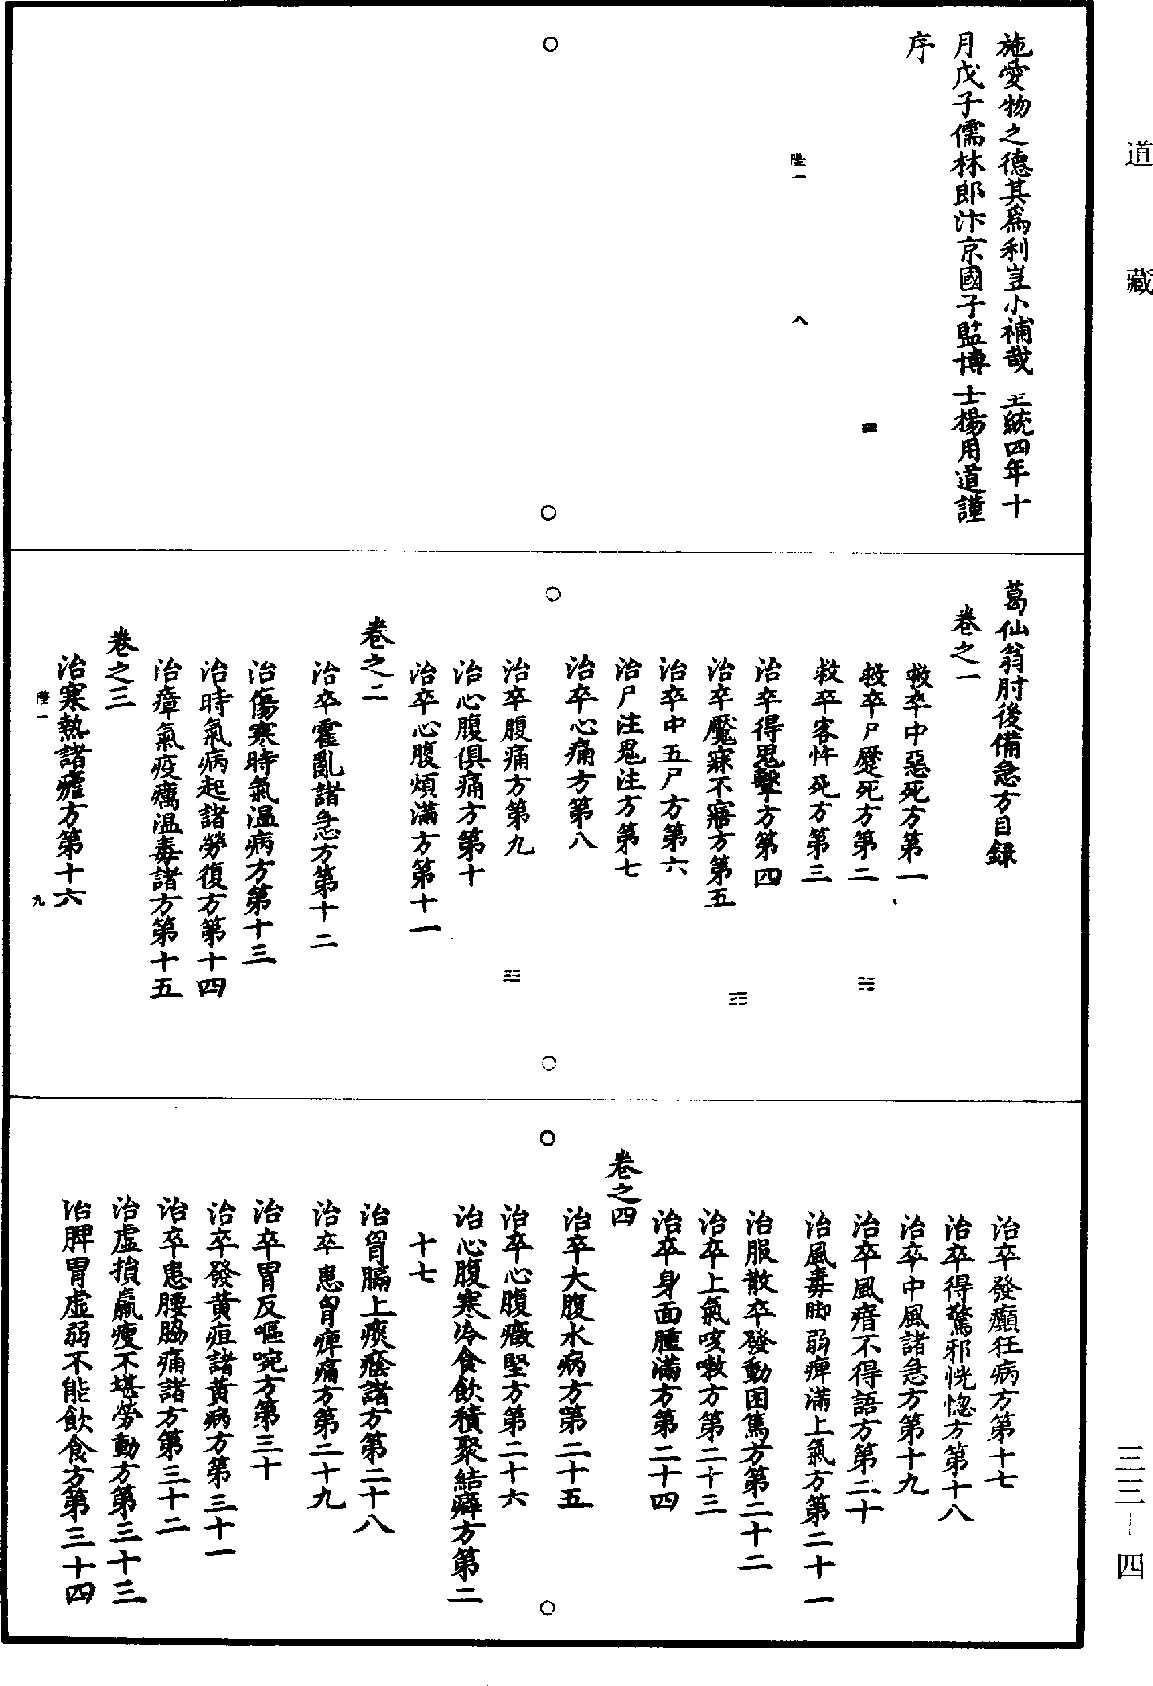 道藏
施愛物之德其為利豈小補哉 皇統四年十
月戊子儒林郎汴京國子監博士楊用道謹
序
陸一
八
葛仙翁肘後備急方目録
卷之一
救卒中惡死方第一
救卒尸蹷死方第二
救卒客忤死方第三
治卒得鬼擊方第四
治卒魘寐不寤方第五
治卒中五尸方第六
治尸注鬼注方第七
治卒心痛方第八
治卒腹痛方第九
治心腹俱痛方第十
治卒心腹煩滿方第十一
卷之二
治卒霍亂諸急方第十二
治傷寒時氣温病方第十三
治時氣病起諸勞復方第十四
治瘴氣疫癘温毒諸方第十五
卷之三
治寒熱諸瘧方第十六
陸一
九
治卒發癲狂病方第十七
治卒得驚邪恍惚方第十八
治卒中風諸急方第十九
治卒風瘖不得語方第二十
治風毒脚弱痺滿上氣方第二十一
治服散卒發動困篤方第二十二
治卒上氣咳嗽方第二十三
治卒身面腫滿方第二十四
卷之四
治卒大腹水病方第二十五
治卒心腹癥堅方第二十六
治心腹寒冷食飲積聚結癖方第二
十七
治胷膈上痰癊諸方第二十八
治卒患胷痺痛方第二十九
治卒胃反嘔啘方第三十
治卒發黃疸諸黃病方第三十一
治卒患腰脇痛諸方第三十二
治虛損羸瘦不堪勞動方第三十三
治脾胃虛弱不能飲食方第三十四
三三—四